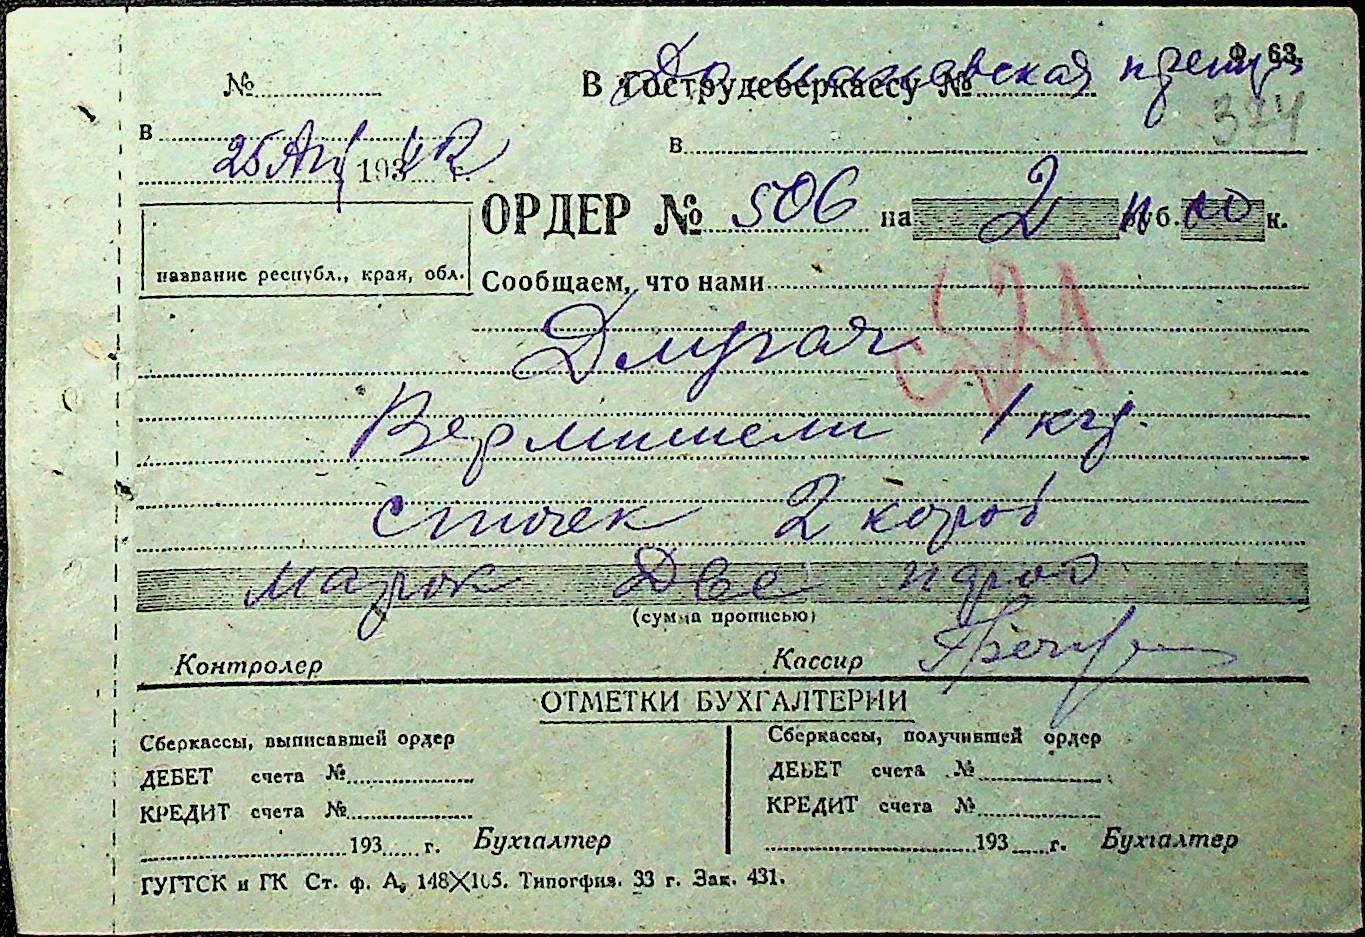 Ф. 63.
№
В Гострудсберкассу №
374
в
в
25 Апр 1942 г.
ОРДЕР № 506 на 2 руб. 00 к.
название республ., края, обл.
Сообщаем, что нами
521
Длугач
Вермишели 1 кгр.
спичек 2 короб
марок Две
(сумма прописью)
Контролер
Кассир
ОТМЕТКИ БУХГАЛТЕРИИ
Сберкассы, выписавшей ордер
Сберкассы, получившей ордер
ДЕБЕТ счета №
ДЕБЕТ счета №
КРЕДИТ счета №
КРЕДИТ счета №
193 г. Бухгалтер
193 г. Бухгалтер
ГУГТСК и ГК Ст. ф. А, 148X105. Типогфия. 33 г. Зак. 431.